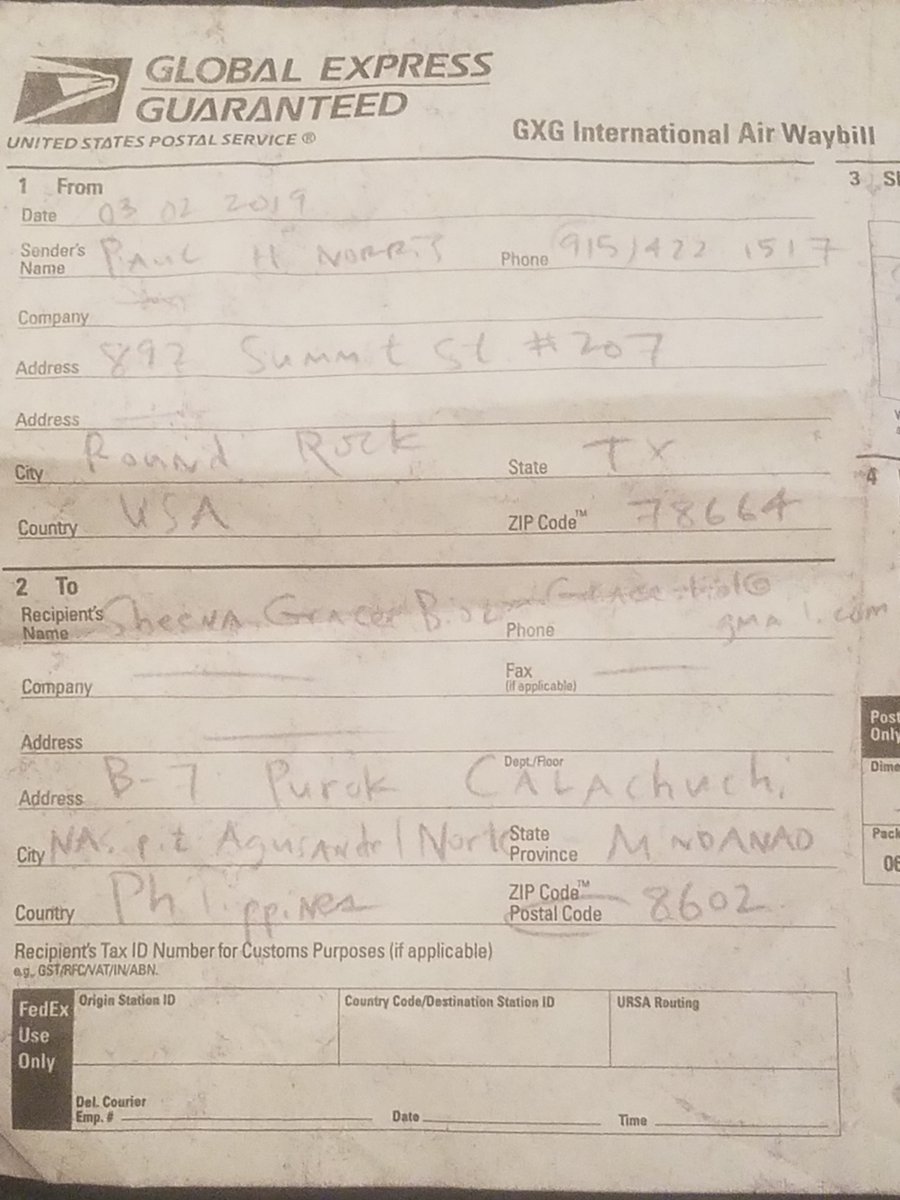 GLOBAL EXPRESS
GUARANTEED
UNITED STATES POSTAL SERVICE ®
GXG International Air Waybill
1 From
3
Date 03 02 2019
Sender's Name PAUL H NORRIS Phone (915) 422 1517
Company
Address 892 Summit St #207
Address
City Round Rock State TX
4
Country USA ZIP Code™ 78664
2 To
Recipient's Name Sheena Grace Phone
gmail.com
Company Fax (if applicable)
Address
Post
Only
Dept./Floor
Dime
Address B-7 Purok CALAchuchi
City NAs.p.t Agusandel Norte State Province MiNDANAO
Pack
06
Country Philippines ZIP Code™ Postal Code 8602
Recipient's Tax ID Number for Customs Purposes (if applicable)
e.g., GST/RFC/VAT/IN/ABN.
FedEx Use Only
Origin Station ID Country Code/Destination Station ID URSA Routing
Del. Courier
Emp. # Date Time